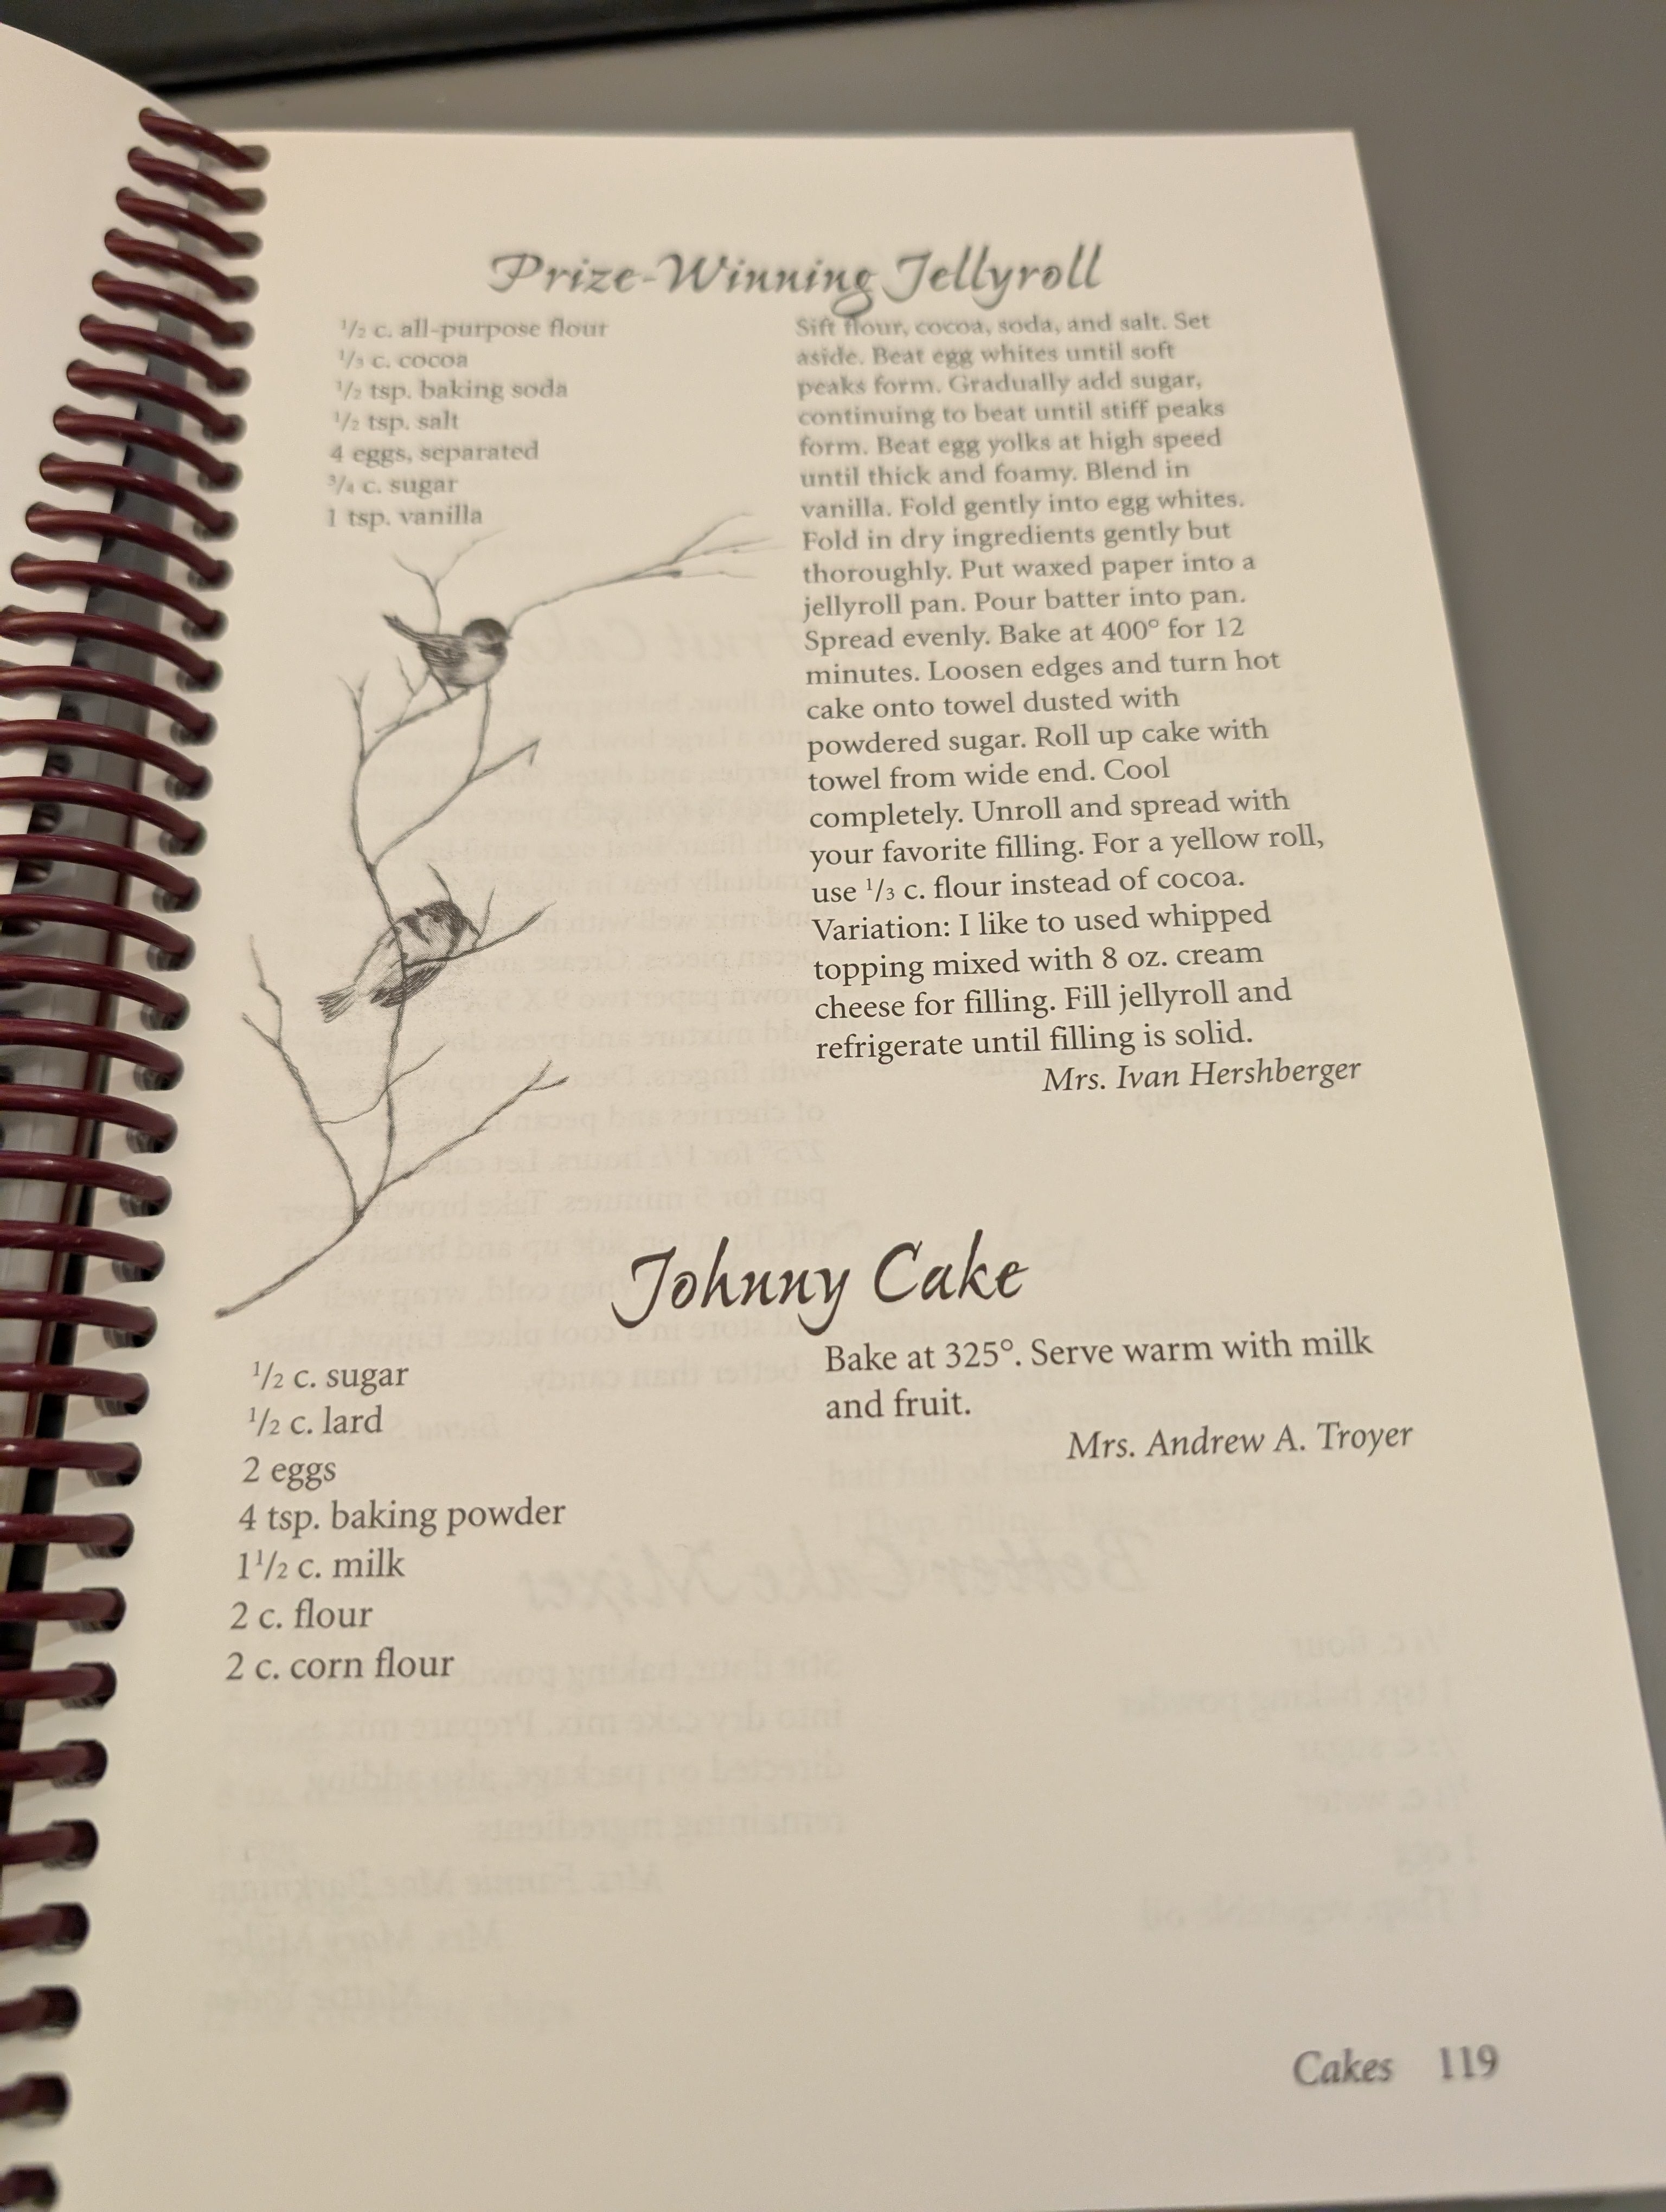 Prize-Winning Jellyroll
1/2 c. all-purpose flour
1/3 c. cocoa
1/2 tsp. baking soda
1/2 tsp. salt
4 eggs, separated
3/4 c. sugar
1 tsp. vanilla
Sift flour, cocoa, soda, and salt. Set
aside. Beat egg whites until soft
peaks form. Gradually add sugar,
continuing to beat until stiff peaks
form. Beat egg yolks at high speed
until thick and foamy. Blend in
vanilla. Fold gently into egg whites.
Fold in dry ingredients gently but
thoroughly. Put waxed paper into a
jellyroll pan. Pour batter into pan.
Spread evenly. Bake at 400° for 12
minutes. Loosen edges and turn hot
cake onto towel dusted with
powdered sugar. Roll up cake with
towel from wide end. Cool
completely. Unroll and spread with
your favorite filling. For a yellow roll,
use 1/3 c. flour instead of cocoa.
Variation: I like to used whipped
topping mixed with 8 oz. cream
cheese for filling. Fill jellyroll and
refrigerate until filling is solid.
Mrs. Ivan Hershberger
Johnny Cake
1/2 c. sugar
1/2 c. lard
2 eggs
4 tsp. baking powder
1 1/2 c. milk
2 c. flour
2 c. corn flour
Bake at 325°. Serve warm with milk
and fruit.
Mrs. Andrew A. Troyer
Cakes 119